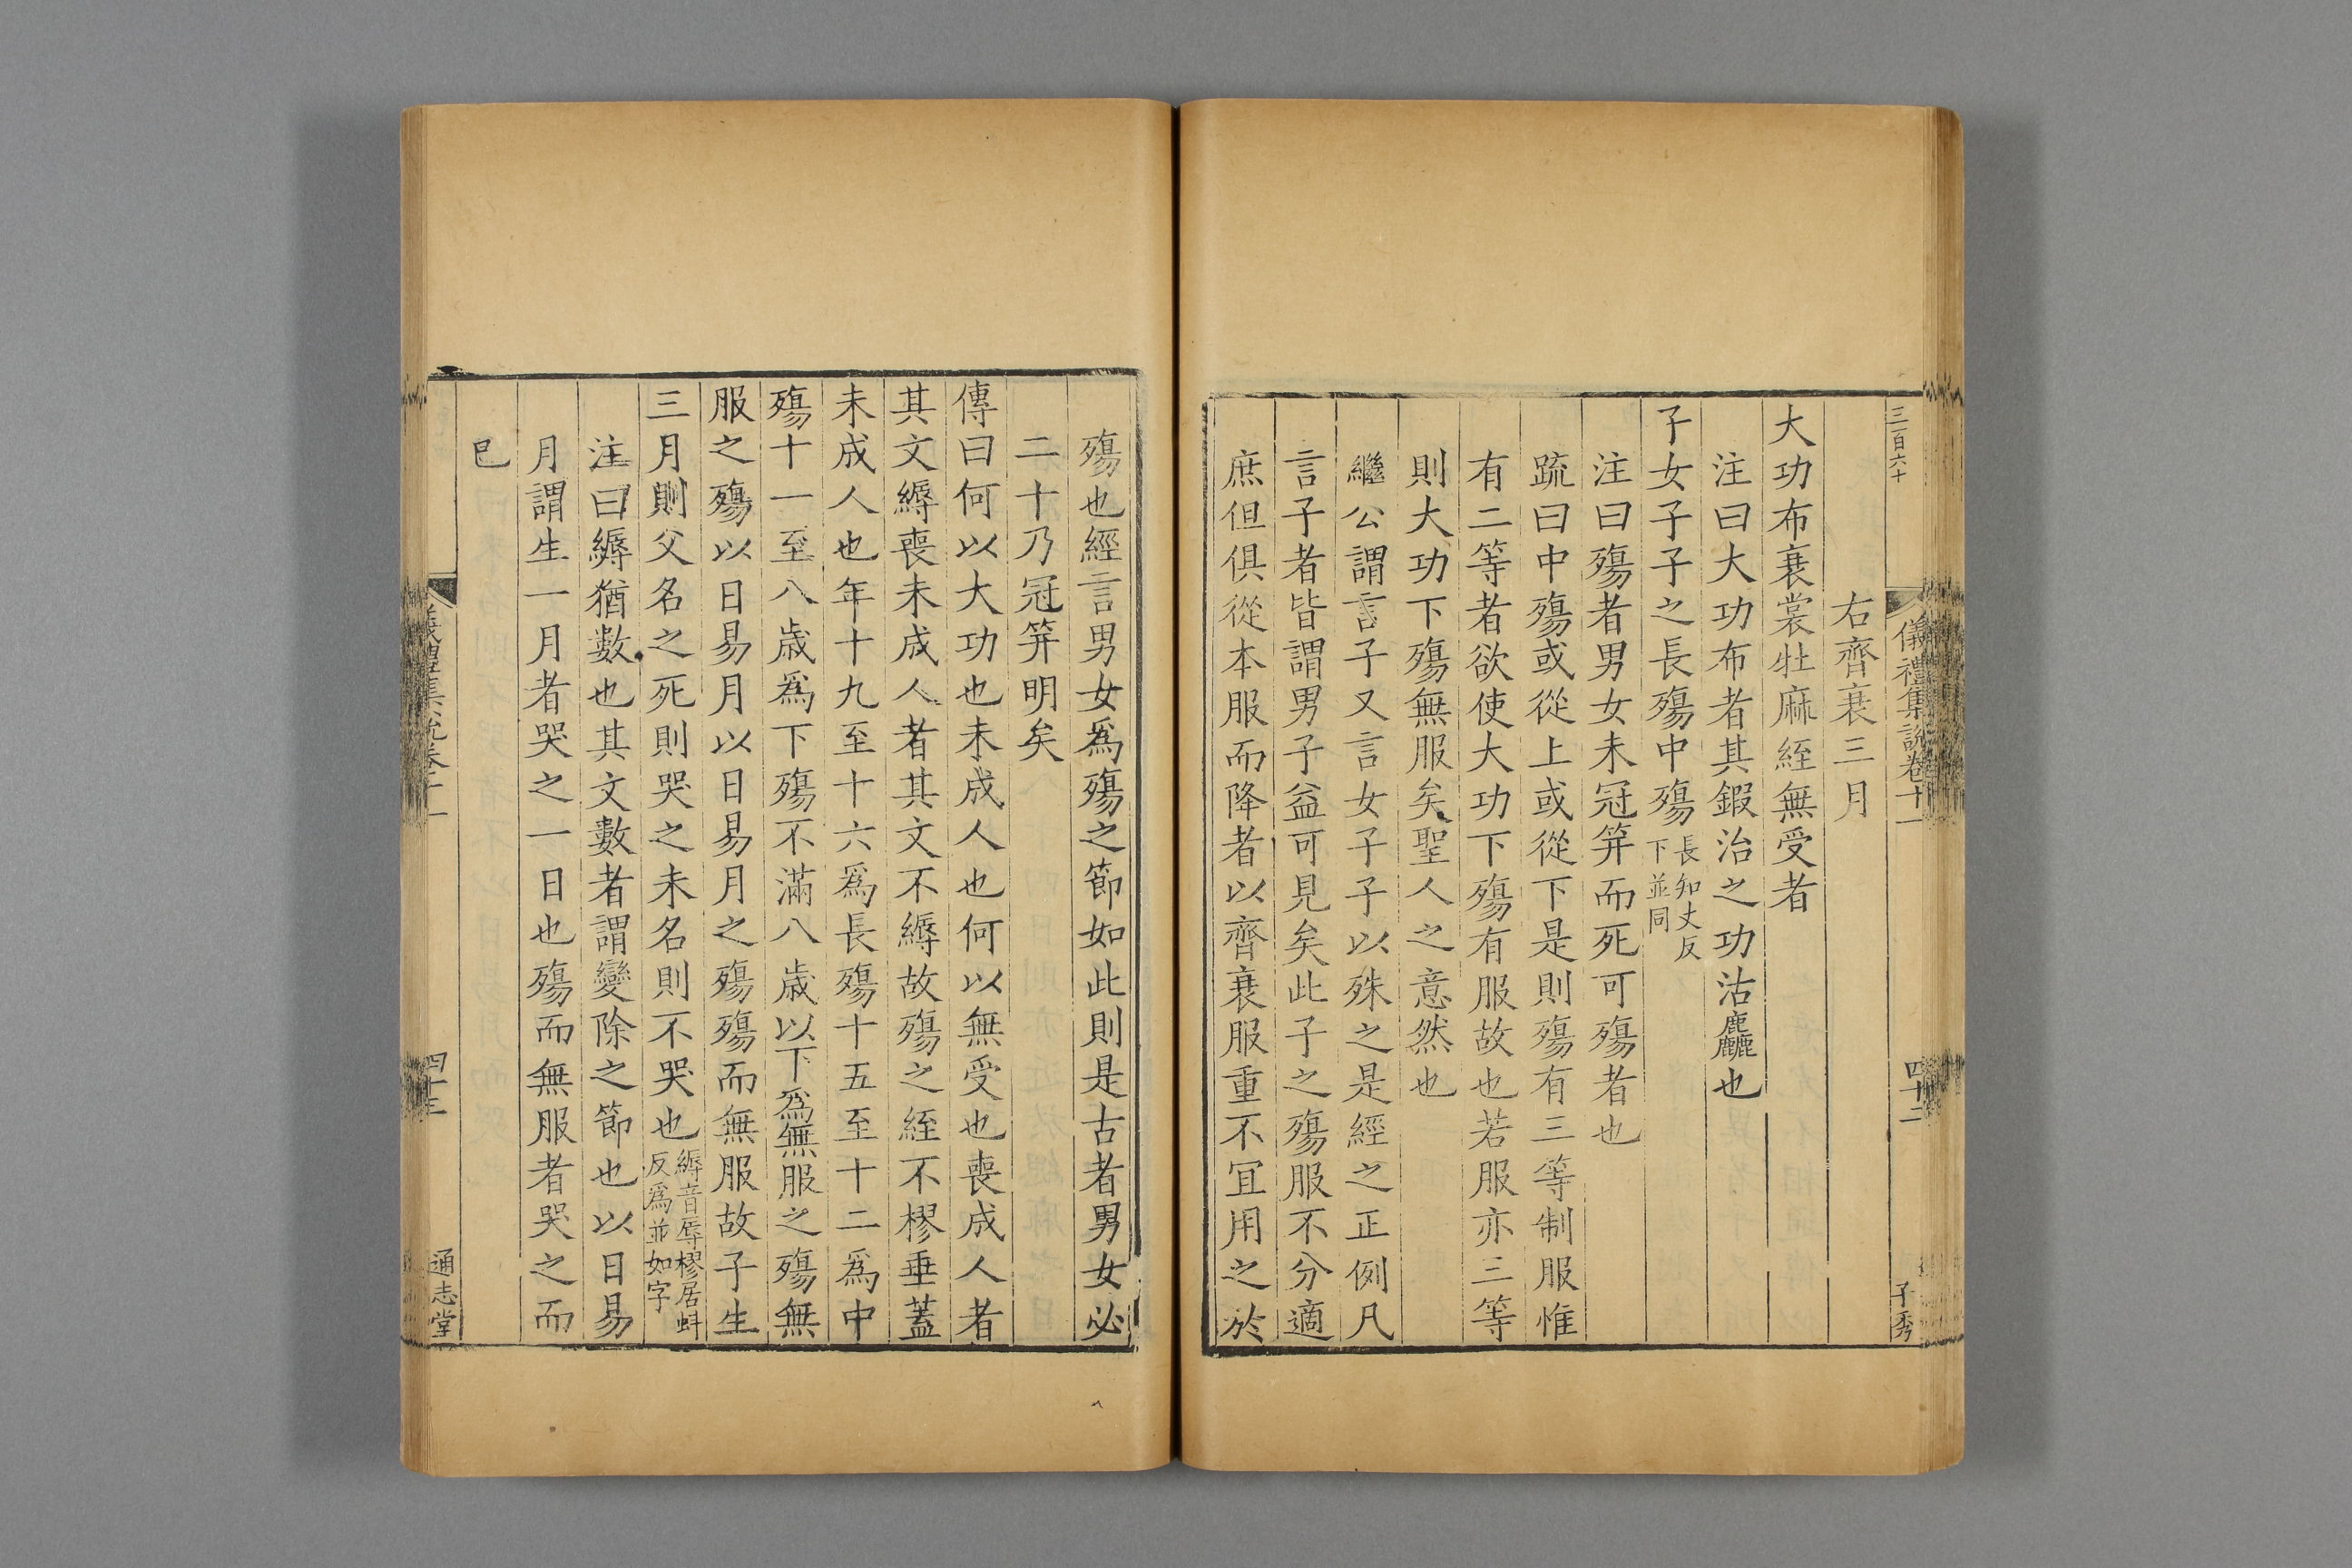 三百六十
儀禮集說卷十一
四十二
子秀
右齊衰三月
大功布衰裳牡麻絰無受者
注曰大功布者其鍜治之功沽麤也
子女子子之長殤中殤長知丈反下並同
注曰殤者男女未冠笄而死可殤者也
疏曰中殤或從上或從下是則殤有三等制服惟
有二等者欲使大功下殤有服故也若服亦三等
則大功下殤無服矣聖人之意然也
繼公謂言子又言女子子以殊之是經之正例凡
言子者皆謂男子益可見矣此子之殤服不分適
庶但俱從本服而降者以齊衰服重不宜用之於
殤也經言男女爲殤之節如此則是古者男女必
二十乃冠笄明矣
傳曰何以大功也未成人也何以無受也喪成人者
其文縟喪未成人者其文不縟故殤之絰不樛垂蓋
未成人也年十九至十六爲長殤十五至十二爲中
殤十一至八歳爲下殤不滿八歳以下爲無服之殤無
服之殤以日易月以日易月之殤殤而無服故子生
三月則父名之死則哭之未名則不哭也縟音辱樛居虯反爲並如字
注曰縟猶數也其文數者謂變除之節也以日易
月謂生一月者哭之一日也殤而無服者哭之而
已
儀禮集說卷十一
四十三
通志堂